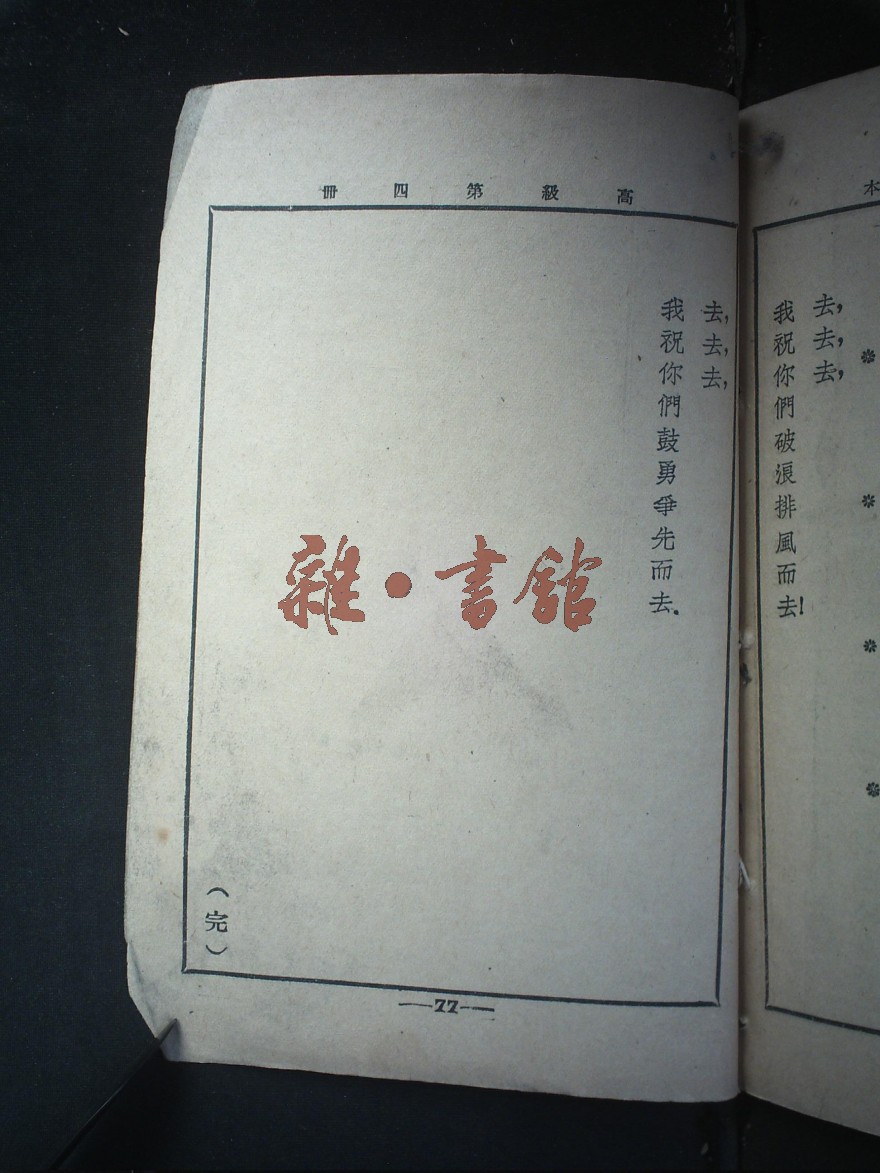 本
去，
去，
去，
我祝你們破浪排風而去！
高級第四冊
去，
去，
去，
我祝你們鼓勇爭先而去．
（完）
—77—
雜·書館